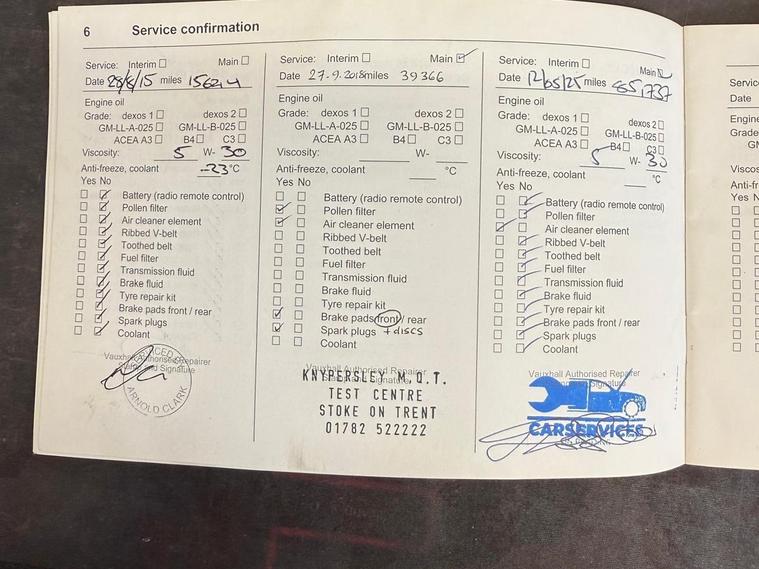 6 Service confirmation
Service: Interim Main
Date 28/8/15 miles
Engine oil
Grade: dexos 1 dexos 2
GM-LL-A-025 GM-LL-B-025
ACEA A3 B4 C3
Viscosity: 5 W- 30
Anti-freeze, coolant -23 °C
Yes No
Battery (radio remote control)
Pollen filter
Air cleaner element
Ribbed V-belt
Toothed belt
Fuel filter
Transmission fluid
Brake fluid
Tyre repair kit
Brake pads front / rear
Spark plugs
Coolant
Vauxhall Authorised Repairer
Signature
ARNOLD CLARK
Service: Interim Main
Date 27-9-2018 miles 39366
Engine oil
Grade: dexos 1 dexos 2
GM-LL-A-025 GM-LL-B-025
ACEA A3 B4 C3
Viscosity: W-
Anti-freeze, coolant °C
Yes No
Battery (radio remote control)
Pollen filter
Air cleaner element
Ribbed V-belt
Toothed belt
Fuel filter
Transmission fluid
Brake fluid
Tyre repair kit
Brake pads front / rear
Spark plugs + discs
Coolant
Vauxhall Authorised Repairer
Signature
KNYPERSLEY M.O.T.
TEST CENTRE
STOKE ON TRENT
01782 522222
Service: Interim Main
Date 12/05/25 miles
Engine oil
Grade: dexos 1 dexos 2
GM-LL-A-025 GM-LL-B-025
ACEA A3 B4 C3
Viscosity: 5 W- 30
Anti-freeze, coolant °C
Yes No
Battery (radio remote control)
Pollen filter
Air cleaner element
Ribbed V-belt
Toothed belt
Fuel filter
Transmission fluid
Brake fluid
Tyre repair kit
Brake pads front / rear
Spark plugs
Coolant
Vauxhall Authorised Repairer
Signature
CARSERVICES
Date